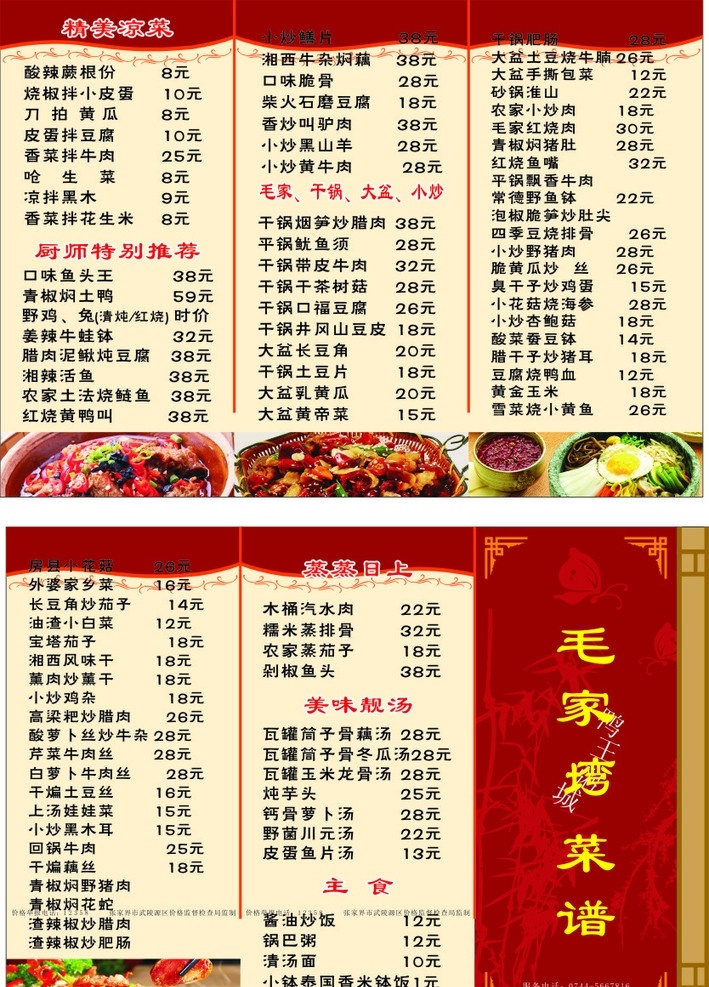 精美凉菜
酸辣蕨根份 8元
烧椒拌小皮蛋 10元
刀拍黄瓜 8元
皮蛋拌豆腐 10元
香菜拌牛肉 25元
呛生菜 8元
凉拌黑木 9元
香菜拌花生米 8元
厨师特别推荐
口味鱼头王 38元
青椒焖土鸭 59元
野鸡、兔(清炖/红烧) 时价
姜辣牛蛙钵 32元
腊肉泥鳅炖豆腐 38元
湘辣活鱼 38元
农家土法烧鲢鱼 38元
红烧黄鸭叫 38元
小炒鳝片 38元
湘西牛杂焖藕 38元
口味脆骨 28元
柴火石磨豆腐 18元
香炒叫驴肉 38元
小炒黑山羊 28元
小炒黄牛肉 28元
毛家、干锅、大盆、小炒
干锅烟笋炒腊肉 38元
平锅鱿鱼须 28元
干锅带皮牛肉 32元
干锅干茶树菇 28元
干锅口福豆腐 26元
干锅井冈山豆皮 18元
大盆长豆角 20元
干锅土豆片 18元
大盆乳黄瓜 20元
大盆黄帝菜 15元
干锅肥肠 28元
大盆土豆烧牛腩 26元
大盆手撕包菜 12元
砂锅淮山 22元
农家小炒肉 18元
毛家红烧肉 30元
青椒焖猪肚 28元
红烧鱼嘴 32元
平锅飘香牛肉
常德野鱼钵 22元
泡椒脆笋炒肚尖
四季豆烧排骨 26元
小炒野猪肉 28元
脆黄瓜炒 丝 26元
臭干子炒鸡蛋 15元
小花菇烧海参 28元
小炒杏鲍菇 18元
酸菜蚕豆钵 14元
腊干子炒猪耳 18元
豆腐烧鸭血 12元
黄金玉米 18元
雪菜烧小黄鱼 26元
房县小花菇 26元
外婆家乡菜 16元
长豆角炒茄子 14元
油渣小白菜 12元
宝塔茄子 18元
湘西风味干 18元
薰肉炒薰干 18元
小炒鸡杂 18元
高梁粑炒腊肉 26元
酸萝卜丝炒牛杂 28元
芹菜牛肉丝 28元
白萝卜牛肉丝 28元
干煸土豆丝 16元
上汤娃娃菜 15元
小炒黑木耳 15元
回锅牛肉 25元
干煸藕丝 18元
青椒焖野猪肉
青椒焖花蛇
价格举报电话:12358 张家界市武陵源区价格监督检查局监制
渣辣椒炒腊肉
渣辣椒炒肥肠
蒸蒸日上
木桶汽水肉 22元
糯米蒸排骨 32元
农家蒸茄子 18元
剁椒鱼头 38元
美味靓汤
瓦罐筒子骨藕汤 28元
瓦罐筒子骨冬瓜汤 28元
瓦罐玉米龙骨汤 28元
炖芋头 25元
钙骨萝卜汤 28元
野菌川元汤 22元
皮蛋鱼片汤 13元
主食
价格举报电话:12358 张家界市武陵源区价格监督检查局监制
酱油炒饭 12元
锅巴粥 12元
清汤面 10元
小钵泰国香米钵饭 1元
毛家塆菜谱
服务电话:0744-5667816